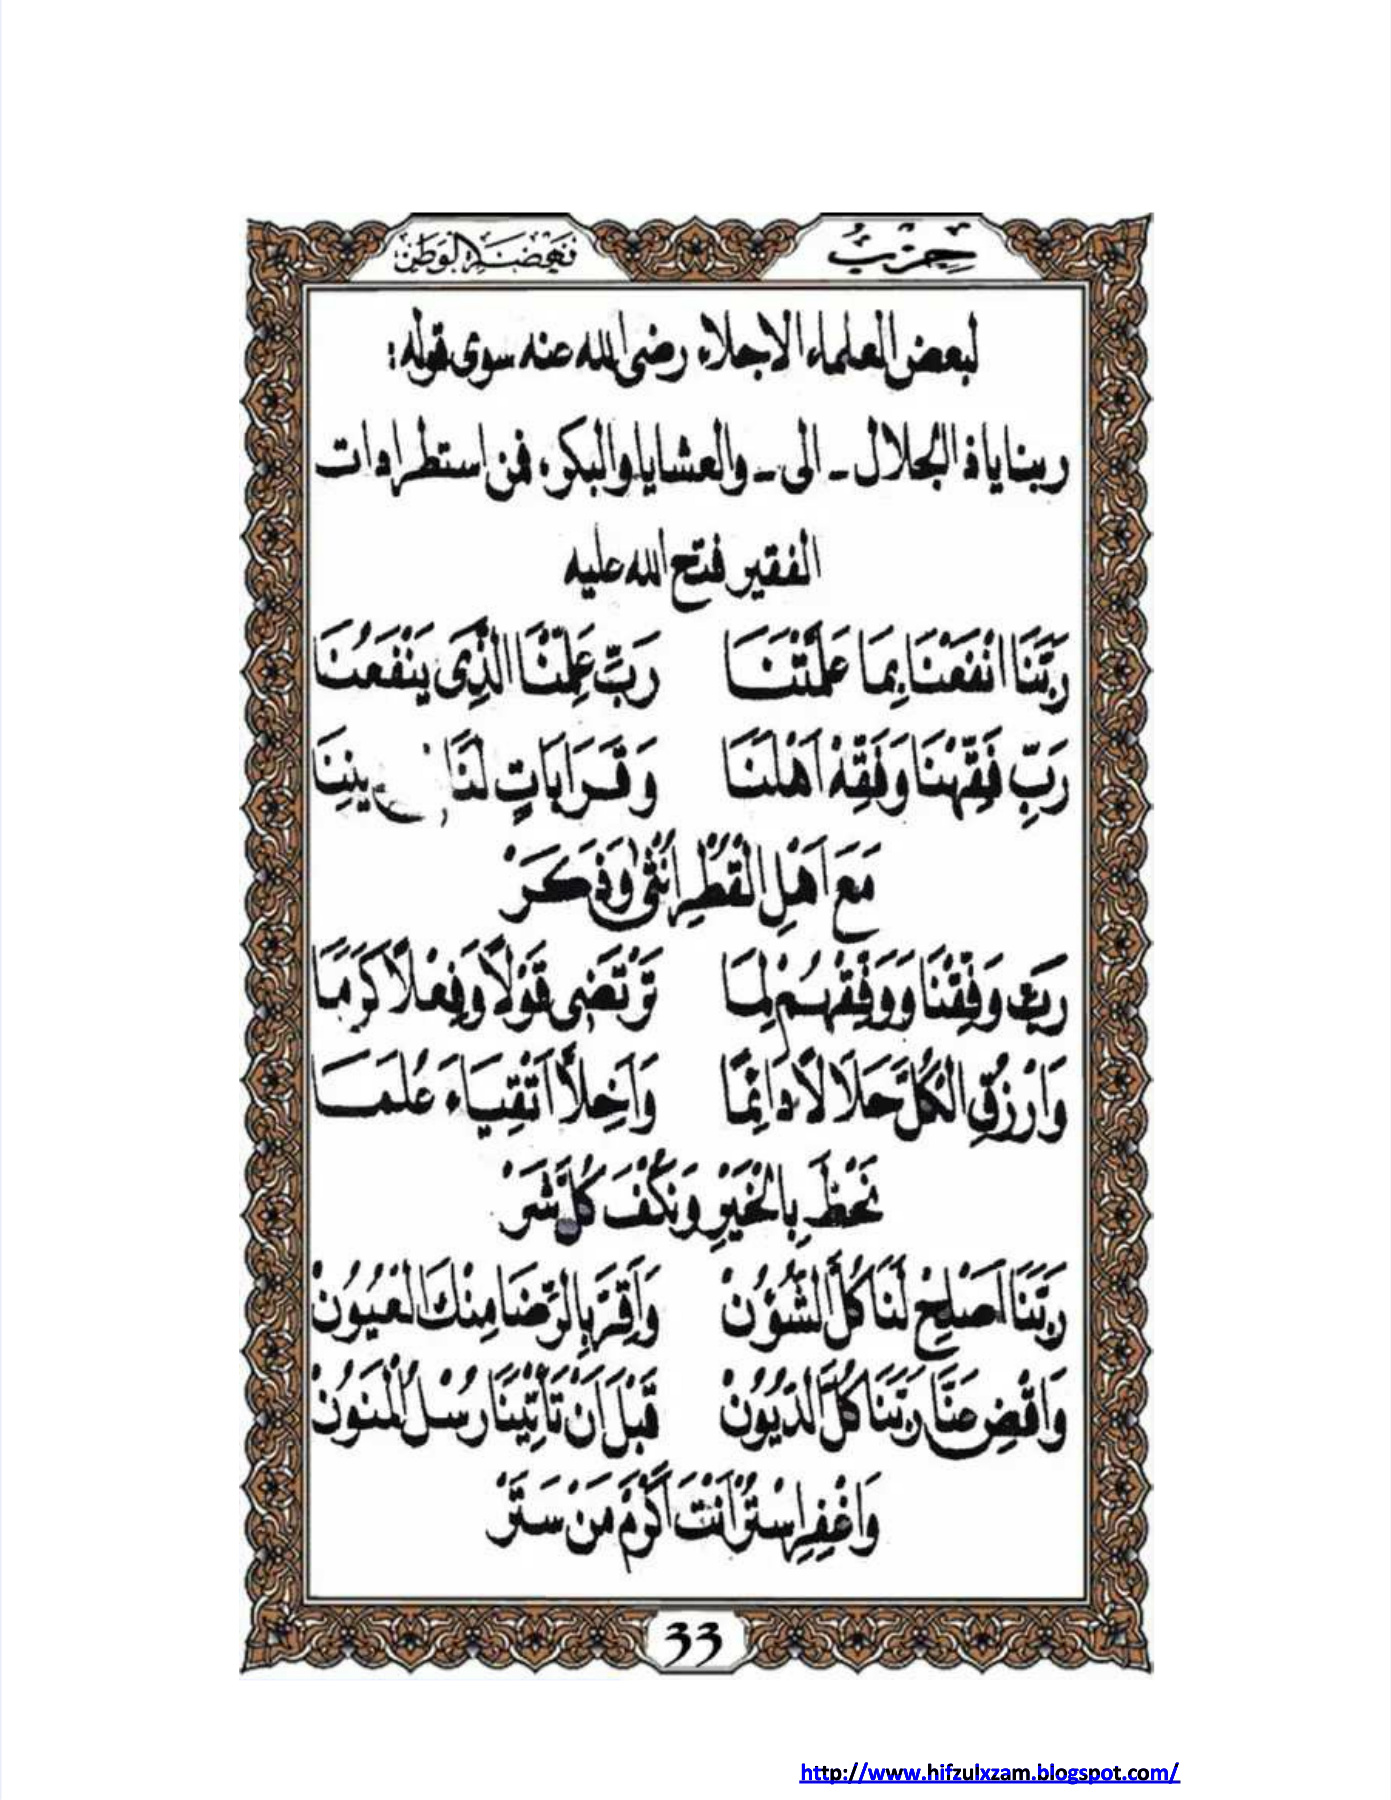 حِزْبُ نَهْضَةِ الْوَطَن
لبعض العلماء الاجلاء رضى الله عنه سوى قوله :
ربنا ياذ الجلال ـ الى ـ والعشايا والبكر، فمن استطرادات
الفقير فتح الله عليه
رَبَّنَا انْفَعْنَا بِمَا عَلَّمْتَنَا رَبِّ عَلِّمْنَا الَّذِى يَنْفَعُنَا
رَبِّ فَقِّهْنَا وَفَقِّهْ اَهْلَنَا وَقَرَابَاتٍ لَنَا
مَعَ اَهْلِ الْقُطْرِ اُنْثَى وَذَكَرْ
رَبِّ وَفِّقْنَا وَوَفِّقْهُمْ لِمَا تَرْتَضِى قَوْلًا وَفِعْلًا كَرَمَا
وَارْزُقِ الْكُلَّ حَلَالًا دَائِمًا وَاَخِلَّا اَتْقِيَاءَ عُلَمَا
نَحْظَ بِالْخَيْرِ وَنُكْفَ كُلَّ شَرْ
رَبَّنَا اَصْلِحْ لَنَا كُلَّ الشُّؤُنْ وَاَقِرَّ بِالرِّضَا مِنْكَ الْعُيُونْ
وَاقْضِ عَنَّا رَبَّنَا كُلَّ الدُّيُونْ قَبْلَ اَنْ تَأْتِيَنَا رُسْلُ الْمَنُونْ
وَاغْفِرِ اسْتُرْ اَنْتَ اَكْرَمُ مَنْ سَتَرْ
33
http://www.hifzulxzam.blogspot.com/